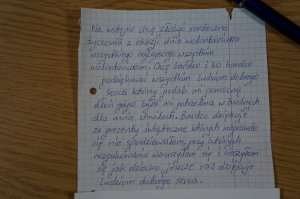 Na wstępie chcę złożyć serdeczne
życzenia z okazji dnia wolontariusza
wszystkiego najlepszego wszystkim
wolontariuszom. Chcę bardzo i to bardzo
podziękować wszystkim ludziom dobrego
serca którzy podali mi pomocną
dłoń gdy była mi potrzebna w trudnych
dla mnie chwilach. Bardzo dziękuję
za prezenty świąteczne których naprawdę
się nie spodziewałem, przy których
rozpakowaniu wzruszyłem się i cieszyłem
się jak dziecko, jeszcze raz dziękuję
ludziom dobrego serca.